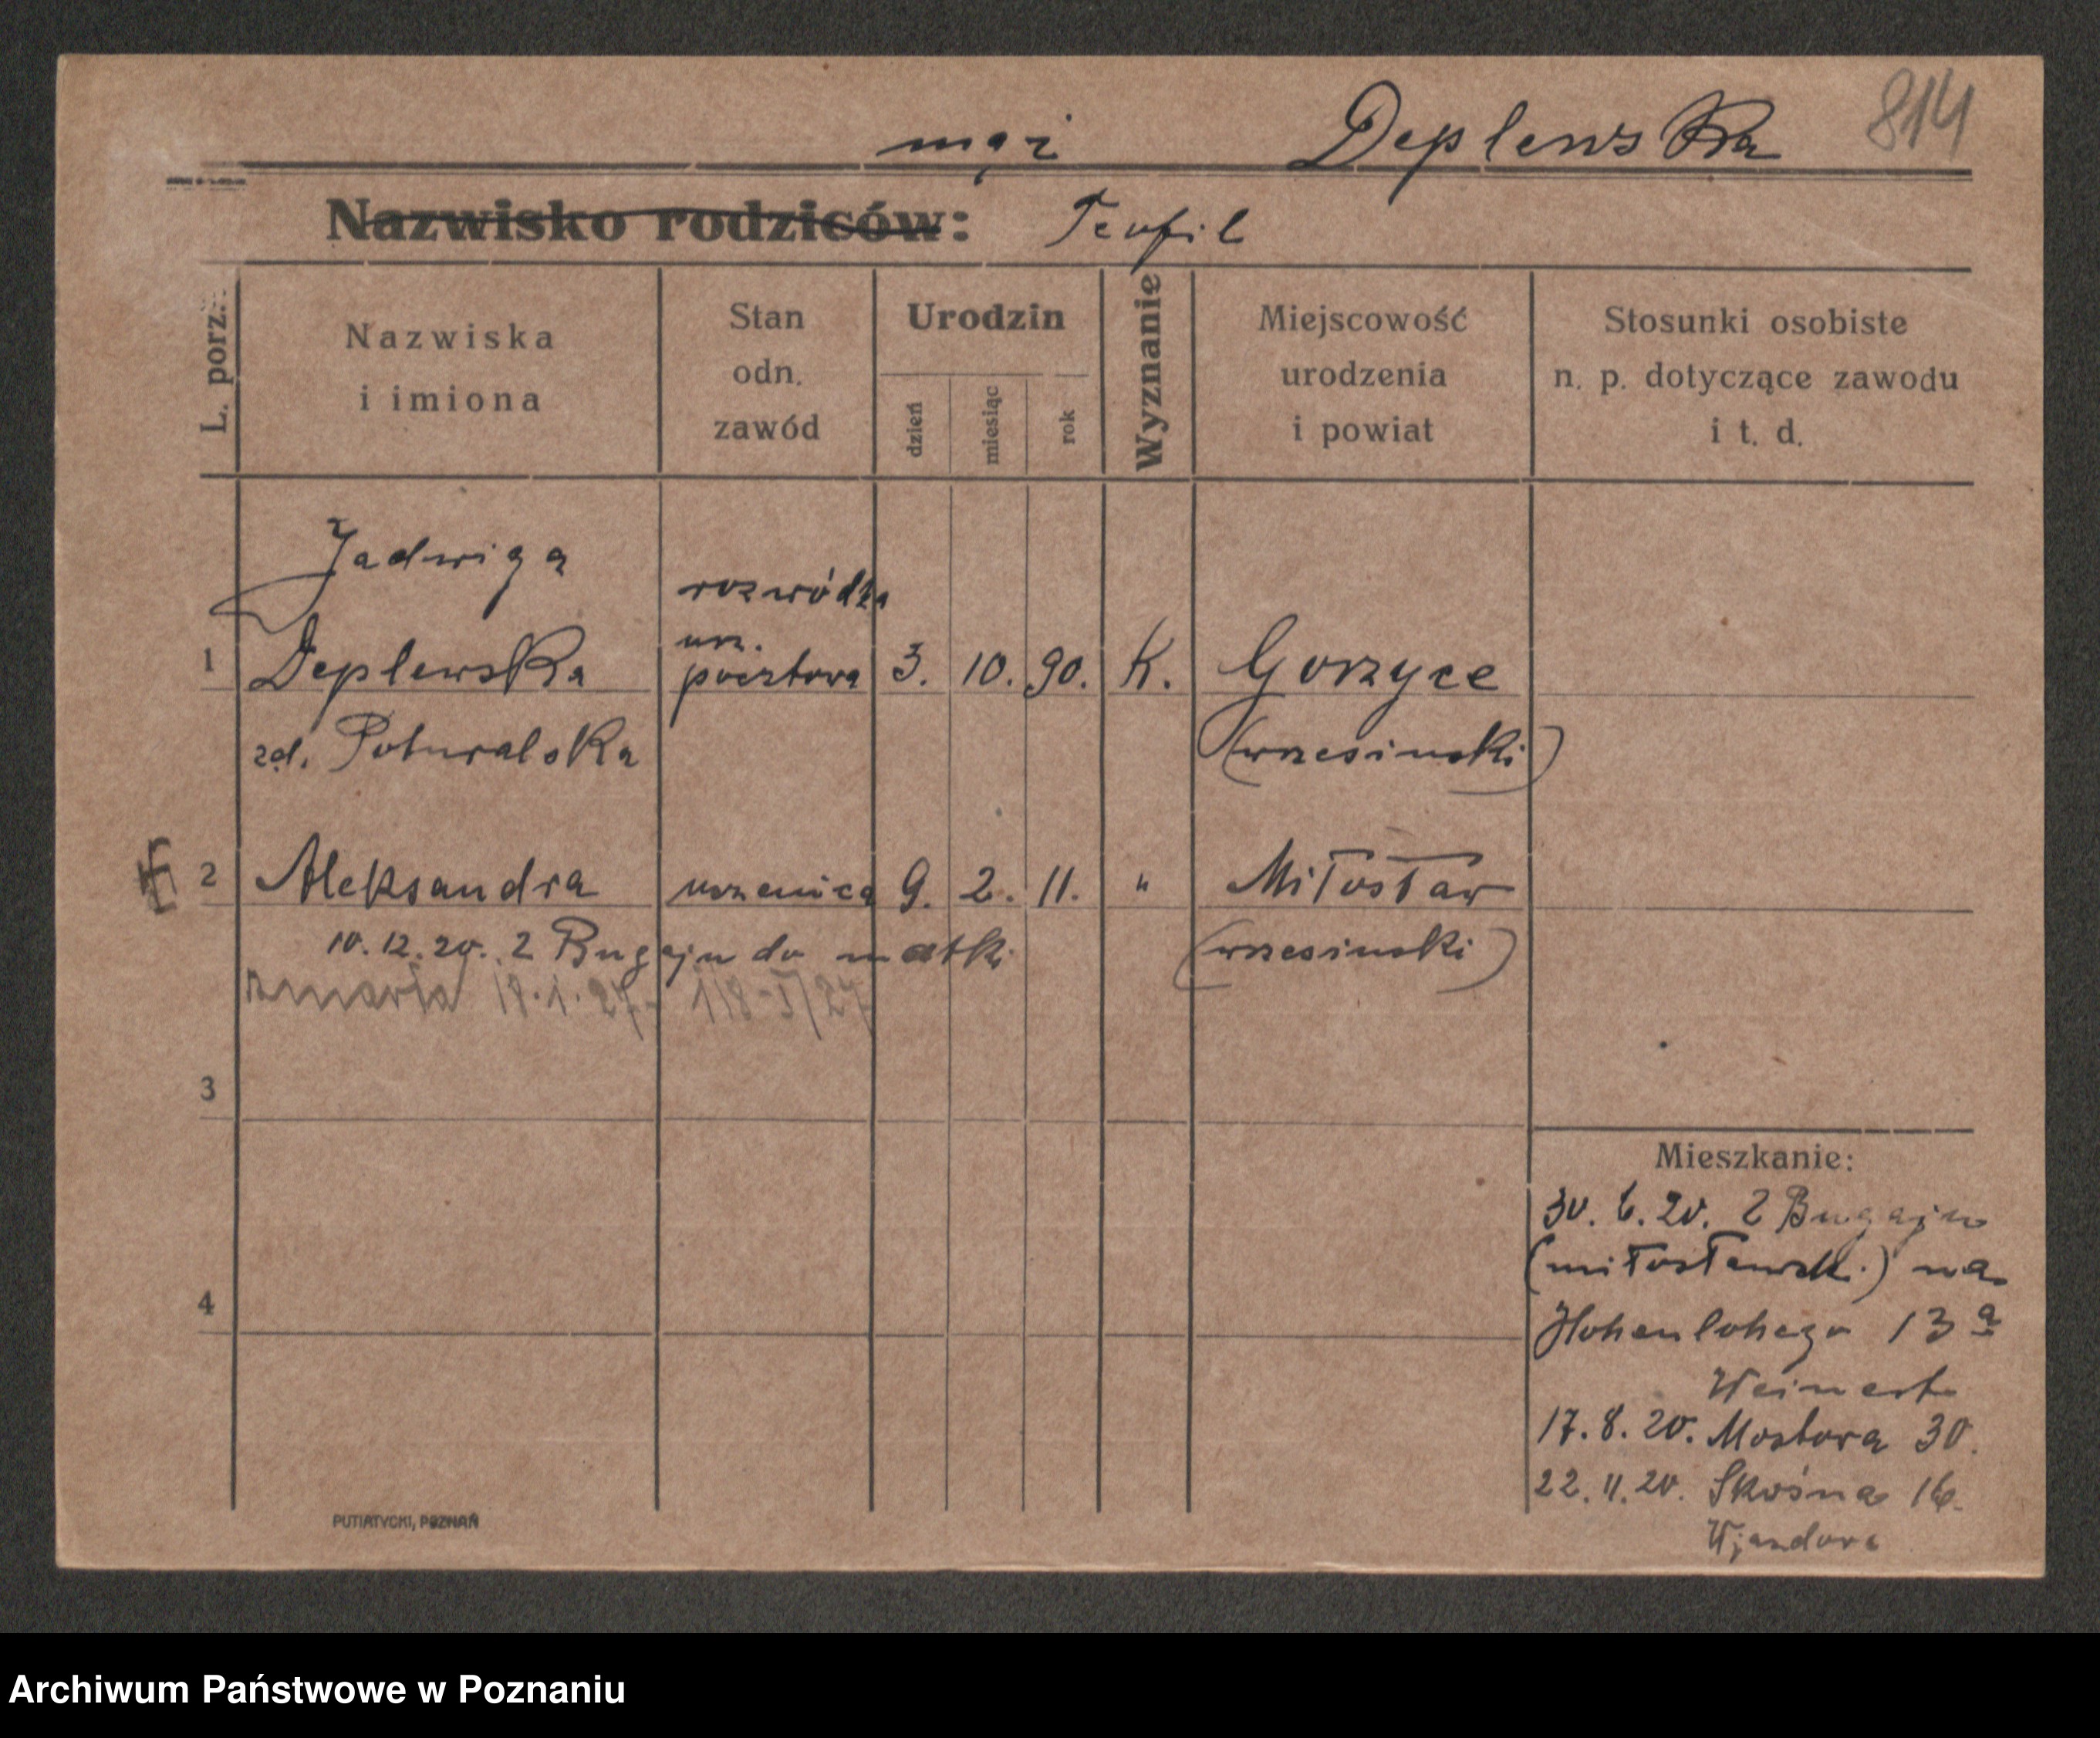 814
mąż Deplewska
Nazwisko rodziców: Teofil
L. porz.
Nazwiska
i imiona
Stan
odn.
zawód
Urodzin
dzień
miesiąc
rok
Wyznanie
Miejscowość
urodzenia
i powiat
Stosunki osobiste
n. p. dotyczące zawodu
i t. d.
Jadwiga
rozwódka
urz.
1 Deplewska pocztowa 3. 10. 90. K. Gorzyce
(wrzesinski)
2 Aleksandra uczenica 9. 2. 11. " Miłosław
10.12.20. z Bugaju do matki (wrzesinski)
zmarła 18.1.27. 118-I/27
3
4
Mieszkanie:
30.6.20. z Bugaju
(miłosławski) na
Hohenlohego 13a
Weinert
17.8.20. Mostowa 30.
22.11.20. Skośna 16.
PUTIATYCKI, POZNAŃ
Archiwum Państwowe w Poznaniu